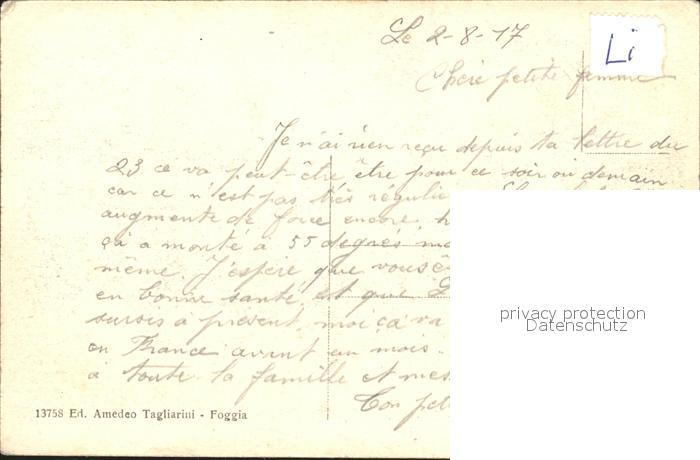 Le 2-8-17
Li
Chère petite femme
Je n'ai rien reçu depuis ta lettre du
23 ce va peut-être être pour ce soir ou demain
car ce n'est pas très régulie
augmente de force encore, h
ça a monté à 55 degrés
même. J'espère que vous
en bonne santé, et que
sursis à présent, moi ça va
en France avant un mois.
à toute la famille et mes
Ton pet
13758 Ed. Amedeo Tagliarini - Foggia
privacy protection
Datenschutz